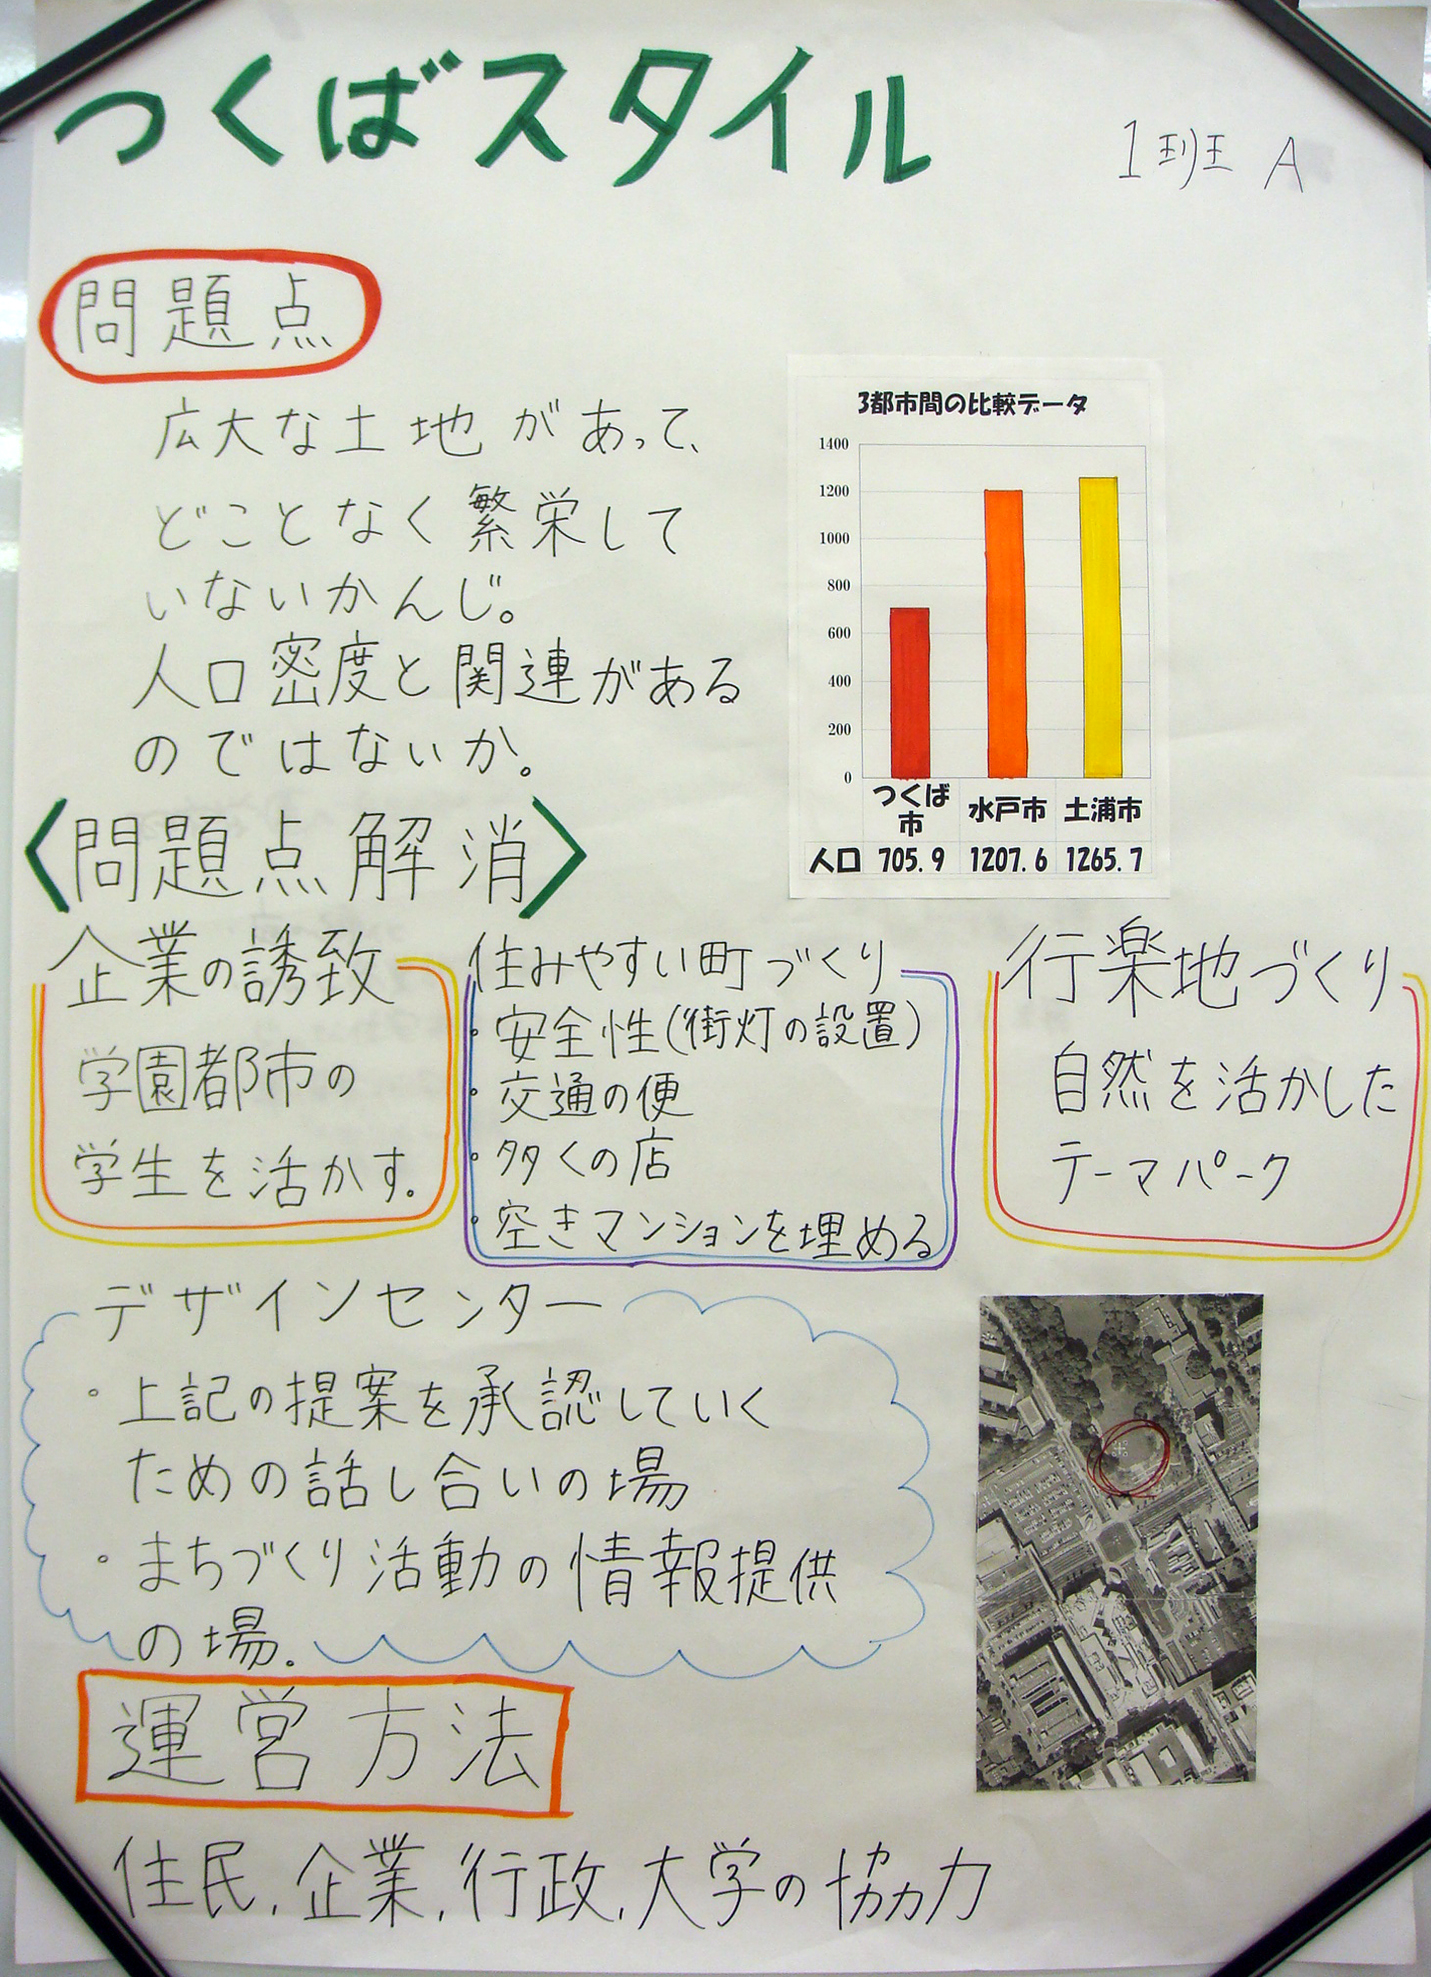 つくばスタイル
1班 A
問題点
広大な土地があって、
どことなく繁栄して
いないかんじ。
人口密度と関連がある
のではないか。
3都市間の比較データ
1400
1200
1000
800
600
400
200
0
つくば市 水戸市 土浦市
人口 705.9 1207.6 1265.7
〈問題点解消〉
企業の誘致
学園都市の
学生を活かす。
住みやすい町づくり
・安全性(街灯の設置)
・交通の便
・多くの店
・空きマンションを埋める
行楽地づくり
自然を活かした
テーマパーク
デザインセンター
・上記の提案を承認していく
ための話し合いの場
・まちづくり活動の情報提供
の場。
運営方法
住民,企業,行政,大学の協力